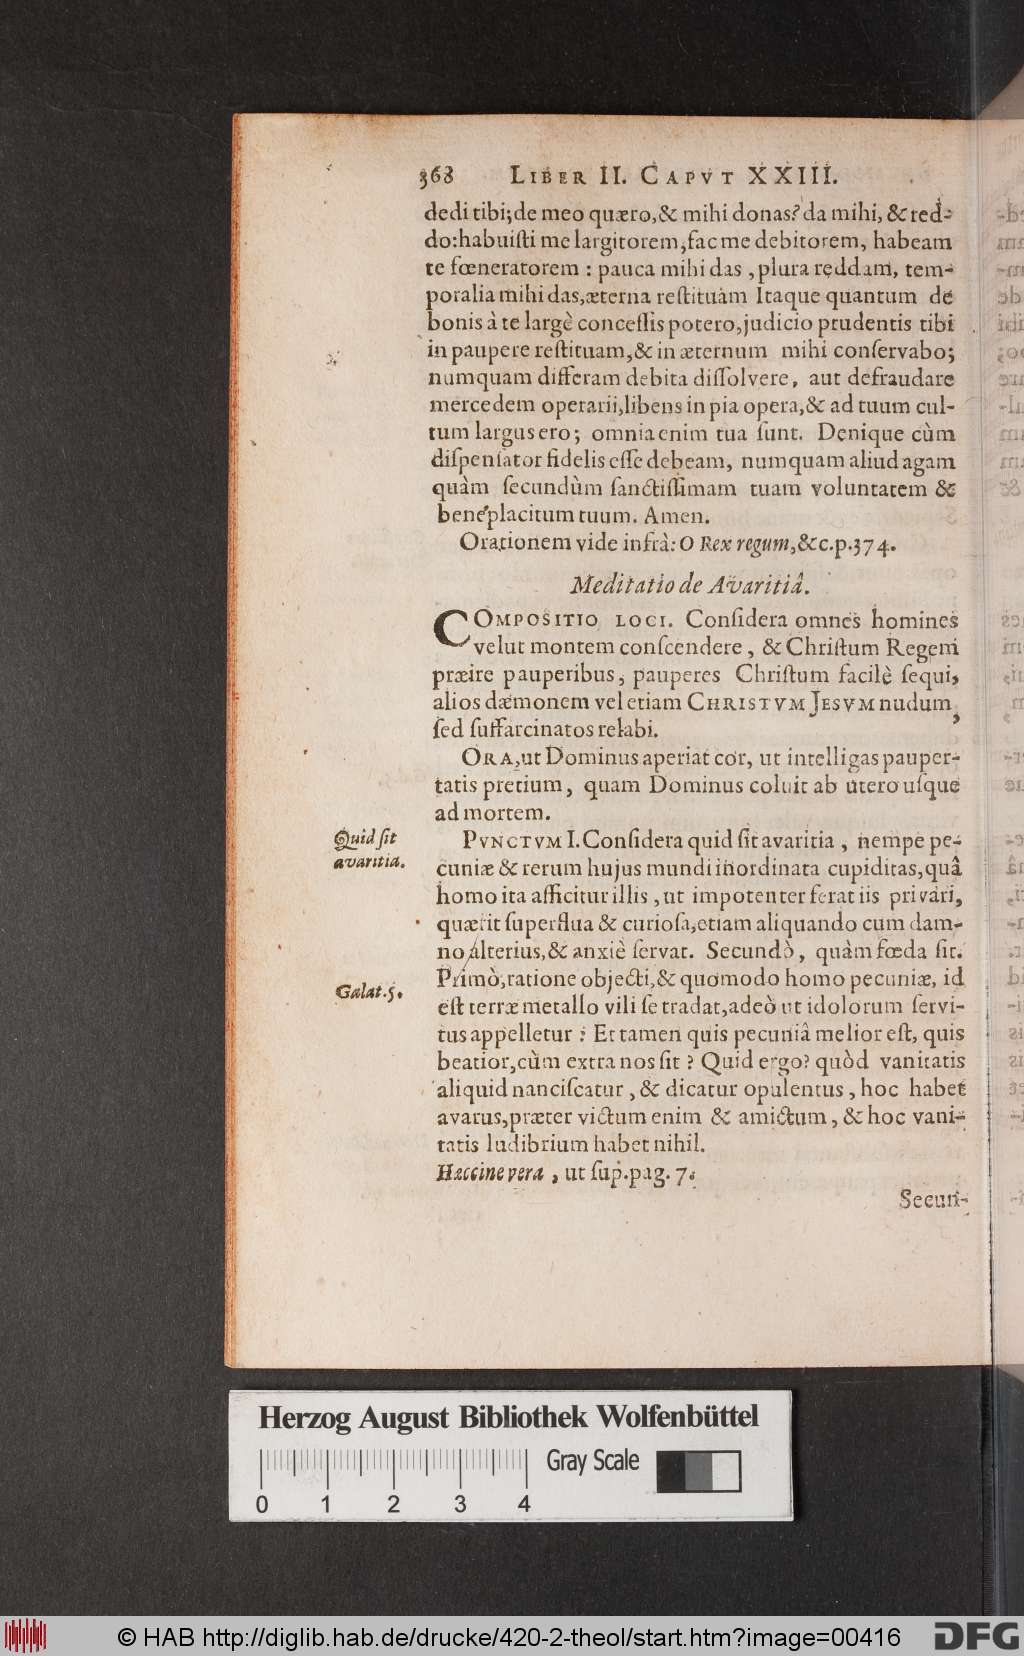 368 LIBER II. CAPVT XXIII.
dedi tibi; de meo quæro, & mihi donas? da mihi, & red-
do: habuiſti me largitorem, fac me debitorem, habeam
te fœneratorem : pauca mihi das , plura reddam, tem-
poralia mihi das, æterna reſtituam Itaque quantum de
bonis à te largè conceſſis potero, judicio prudentis tibi
in paupere reſtituam, & in æternum mihi conſervabo;
numquam differam debita diſſolvere, aut defraudare
mercedem operarii, libens in pia opera, & ad tuum cul-
tum largus ero; omnia enim tua ſunt. Denique cùm
diſpenſator fidelis eſſe debeam, numquam aliud agam
quàm ſecundùm ſanctiſſimam tuam voluntatem &
beneplacitum tuum. Amen.
Orationem vide infrà: O Rex regum, &c. p. 374.
Meditatio de Avaritiâ.
COMPOSITIO LOCI. Conſidera omnes homines
velut montem conſcendere , & Chriſtum Regem
præire pauperibus, pauperes Chriſtum facilè ſequi,
alios dæmonem vel etiam CHRISTVM JESVM nudum,
ſed ſuffarcinatos relabi.
ORA, ut Dominus aperiat cor, ut intelligas pauper-
tatis pretium, quam Dominus coluit ab utero uſque
ad mortem.
Quid ſit
avaritia.
PVNCTVM I. Conſidera quid ſit avaritia , nempe pe-
cuniæ & rerum hujus mundi inordinata cupiditas, quâ
homo ita afficitur illis , ut impotenter ferat iis privari,
quærit ſuperflua & curioſa, etiam aliquando cum dam-
no alterius, & anxiè ſervat. Secundò, quàm fœda ſit.
Galat. 5.
Primò, ratione objecti, & quomodo homo pecuniæ, id
eſt terræ metallo vili ſe tradat, adeò ut idolorum ſervi-
tus appelletur : Et tamen quis pecuniâ melior eſt, quis
beatior, cùm extra nos ſit ? Quid ergo? quòd vanitatis
aliquid nanciſcatur , & dicatur opulentus , hoc habet
avarus, præter victum enim & amictum , & hoc vani-
tatis ludibrium habet nihil.
Hæccine vera , ut ſup. pag. 7.
Secun-
Herzog August Bibliothek Wolfenbüttel
Gray Scale
0 1 2 3 4
© HAB http://diglib.hab.de/drucke/420-2-theol/start.htm?image=00416
DFG